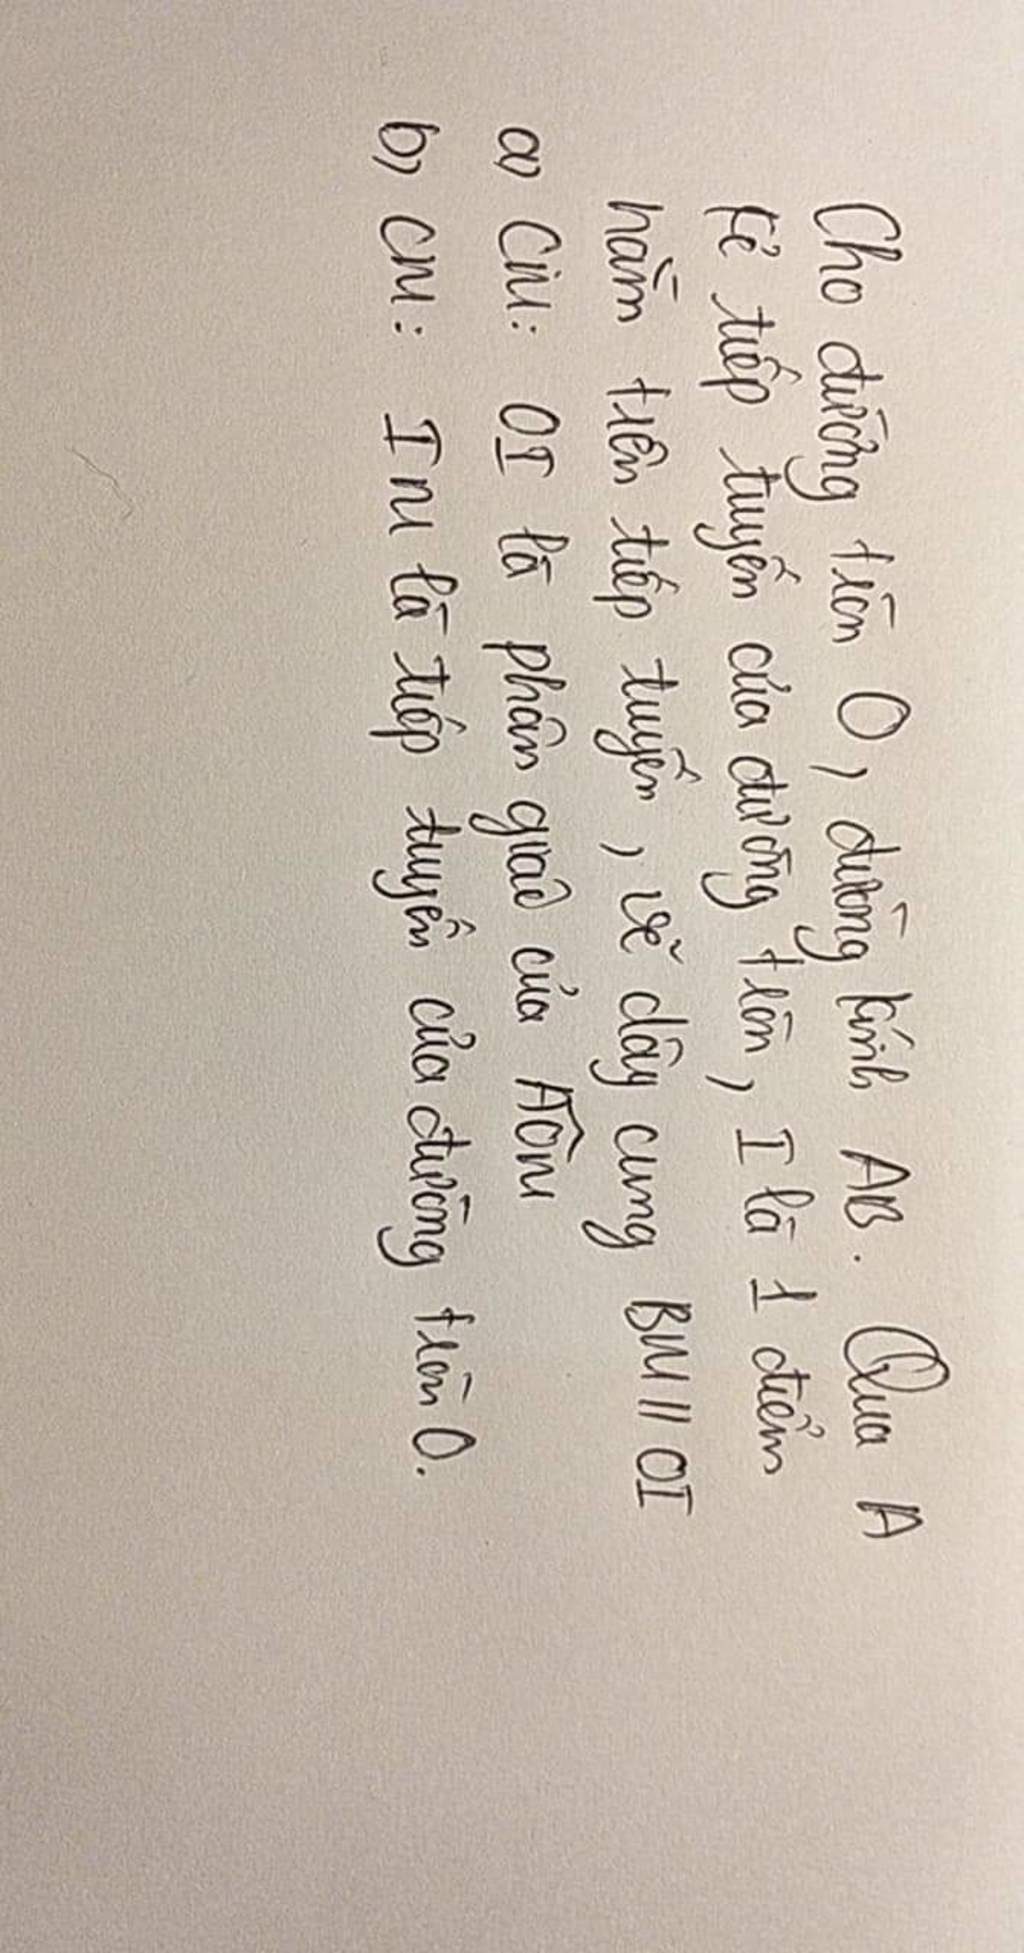 Cho đường tròn O, đường kính AB. Qua A
kẻ tiếp tuyến của đường tròn, I là 1 điểm
nằm trên tiếp tuyến, vẽ dây cung BM // OI
a) CM: OI là phân giác của AÔM
b) CM: IM là tiếp tuyến của đường tròn O.